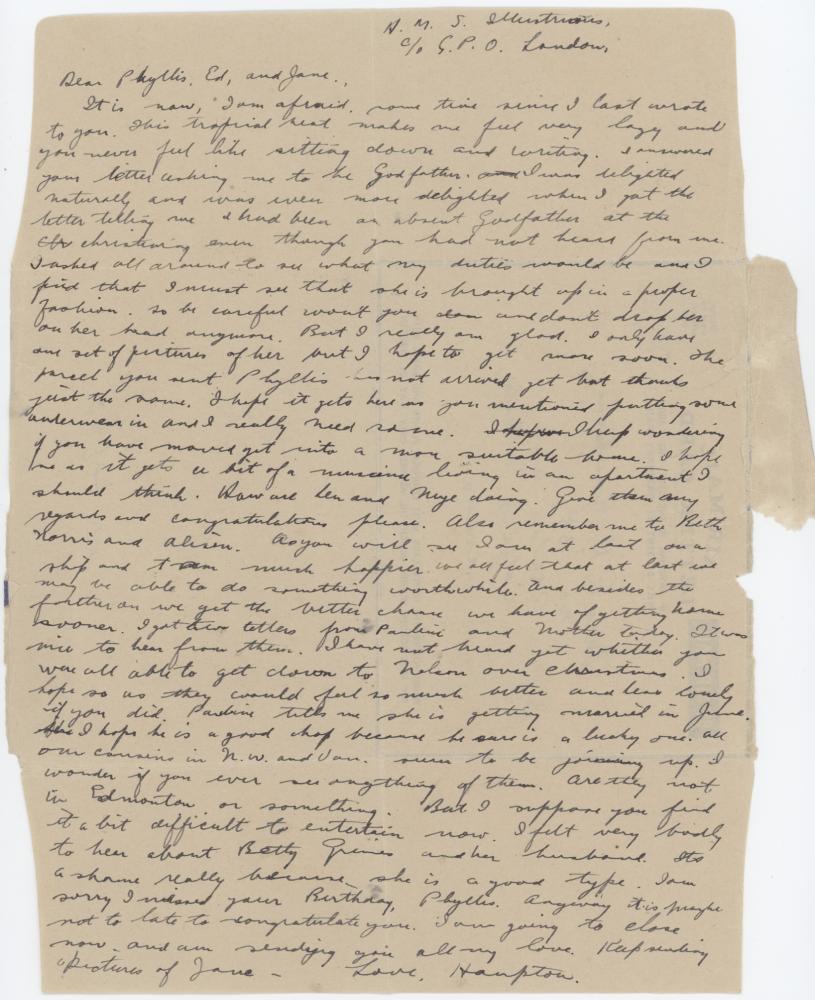 H. M. S. Illustrious,
c/o G. P. O. London,
Dear Phyllis, Ed, and Jane.,
It is now, I am afraid, some time since I last wrote
to you. This tropical heat makes me feel very lazy and
you never feel like sitting down and writing. I answered
your letter asking me to be Godfather. and I was delighted
naturally and was even more delighted when I got the
letter telling me I had been an absent Godfather at the
christening even though you had not heard from me.
I asked all around to see what my duties would be and I
find that I must see that she is brought up in a proper
fashion. so be careful wont you and dont drop her
on her head anymore. But I really am glad. I only have
one set of pictures of her but I hope to get more soon. The
parcel you sent Phyllis has not arrived yet but thanks
just the same. I hope it gets here as you mentioned putting some
underwear in and I really need some. I keep wondering
if you have moved yet into a more suitable home. I hope
so as it gets a bit of a living in an apartment I
should think. How are Len and doing. Give them my
regards and congratulations please. Also remember me to Beth
Norris and Alison. As you will see I am at last on a
ship and I am much happier we all feel that at last we
may be able to do something worthwhile. And besides the
farther on we get the better chance we have of getting home
sooner. I got two letters from Pauline and Mother today. It was
nice to hear from them. I have not heard yet whether you
were all able to get down to Nelson over Christmas. I
hope so as they would feel so much better and less lonely
if you did. Pauline tells me she is getting married in June.
I hope he is a good chap because he sure is a lucky one. All
our cousins in N.W. and Van. seem to be joining up. I
wonder if you ever see anything of them. Are they not
in Edmonton or something. But I suppose you find
it a bit difficult to entertain now. I felt very badly
to hear about Betty and her husband. Its
a shame really because she is a good type. I am
sorry I missed your Birthday, Phyllis. Anyway it is maybe
not to late to congratulate you. I am going to close
now. and am sending you all my love. Keep sending
pictures of Jane – Love, Hampton.